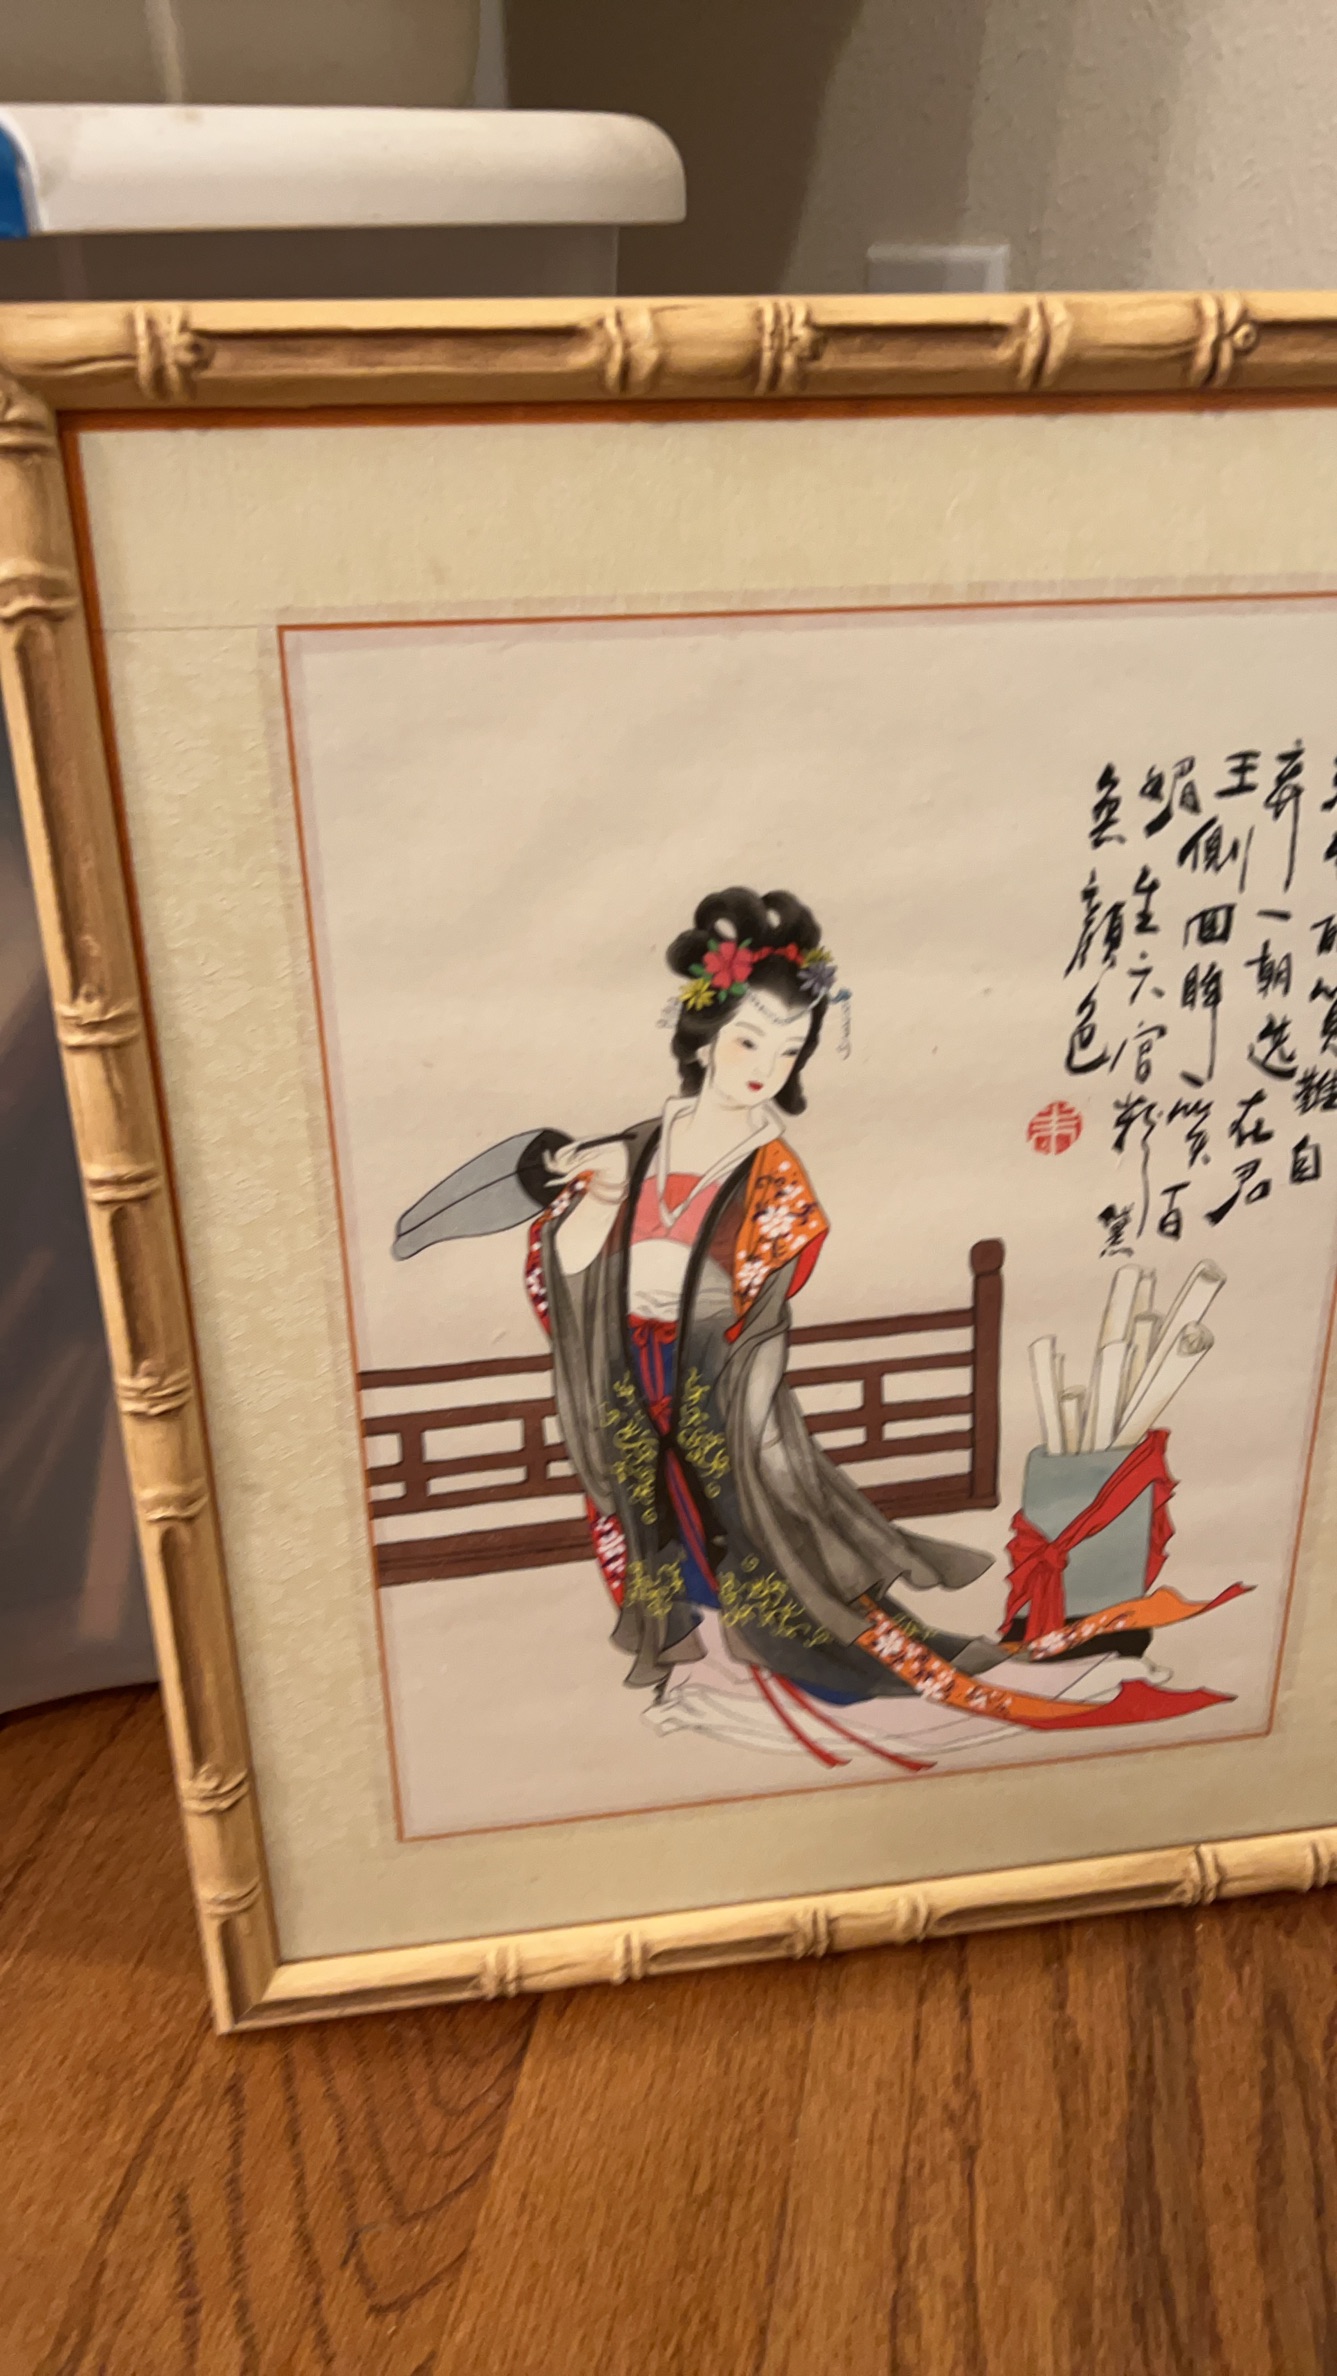 難自
弃一朝选在君
王側回眸一笑百
媚生六宫粉黛
無顏色